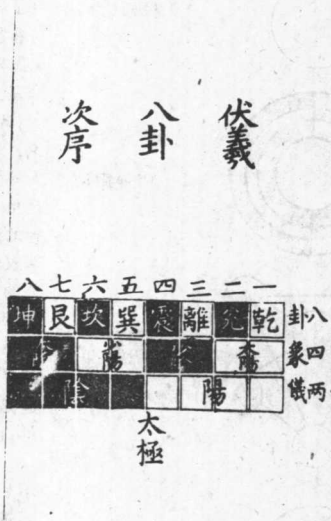 伏羲
八卦
次序
一 二 三 四 五 六 七 八
八卦 乾 兌 離 震 巽 坎 艮 坤
四象 太陽 少陰 少陽 太陰
兩儀 陽 陰
太極